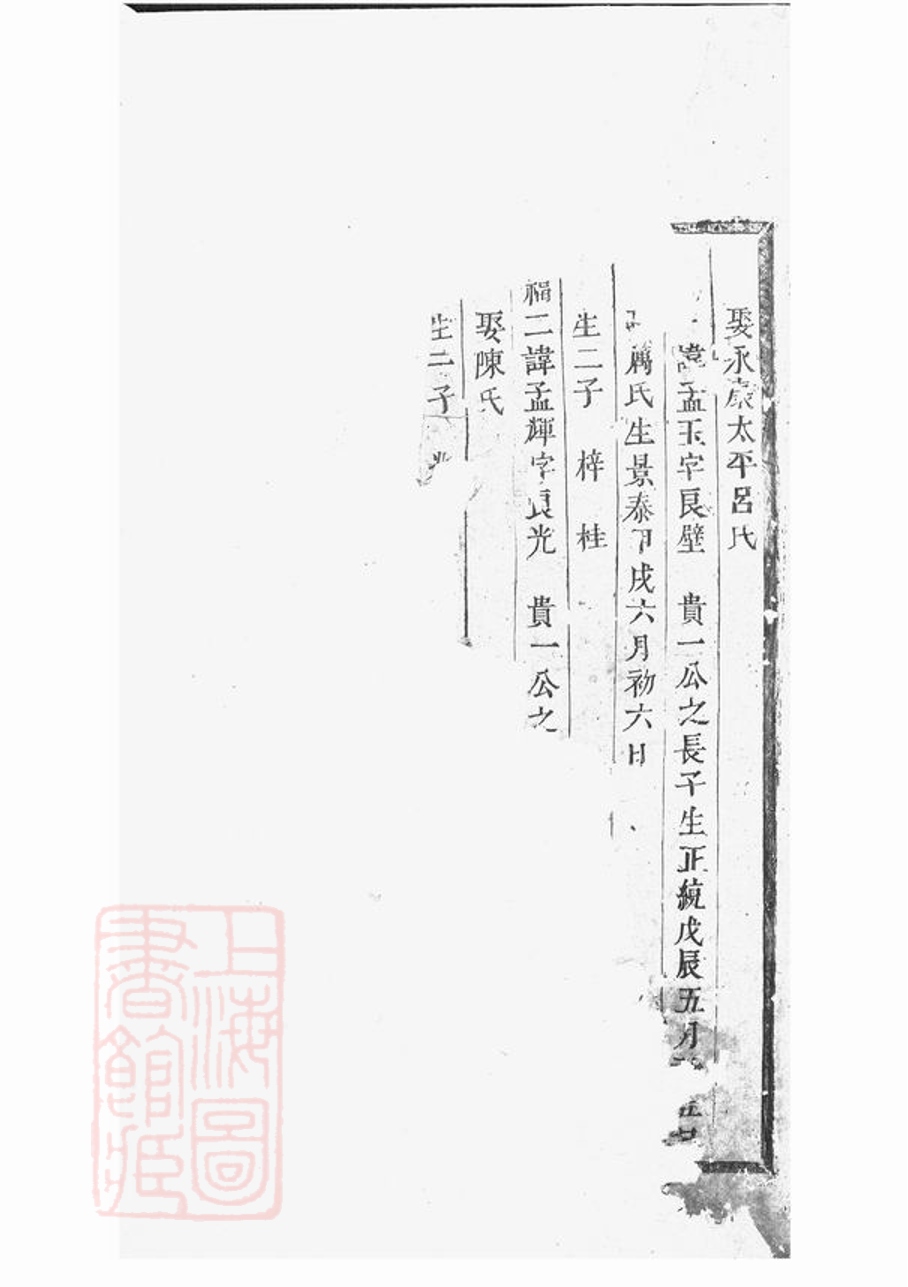 娶永康太平呂氏
諱孟玉字良璧　貴一公之長子生正統戊辰五月
厲氏生景泰甲戌六月初六日
生二子　梓　桂
福二諱孟輝字良光　貴一公之
娶陳氏
生二子
上海圖
書館藏